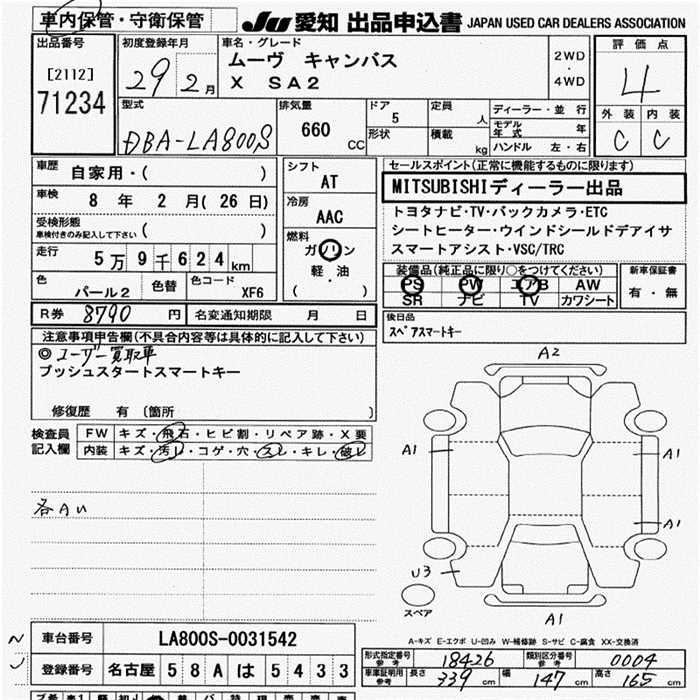 車内保管・守衛保管
JU 愛知 出品申込書 JAPAN USED CAR DEALERS ASSOCIATION
出品番号
[2112]
71234
初度登録年月
29 2月
車名・グレード
ムーヴ キャンバス
X SA2
2WD
・
4WD
評価点
4
外装 内装
C C
型式
DBA-LA800S
排気量
660 CC
ドア
5
形状
定員
人
積載
kg
ディーラー・並行
モデル年式 年
ハンドル 左・右
車歴 自家用・( )
車検 8年 2月(26日)
受検形態
車検付きのみ記入して下さい ( )
走行 5万9千624km
色 パール2 色替 色コード XF6
シフト
AT
冷房
AAC
燃料
ガソリン
軽・油
( )
セールスポイント(正常に機能するものに限ります)
MITSUBISHIディーラー出品
トヨタナビ・TV・バックカメラ・ETC
シートヒーター・ウインドシールドデアイサ
スマートアシスト・VSC/TRC
装備品(純正品に限り○をつけてください)
PS PW エアB AW
SR ナビ TV カワシート
新車保証書
有・無
R券 8790円 名変通知期限 月 日
後日品
スペアスマートキー
注意事項申告欄(不具合内容等は具体的に記入して下さい)
◎ユーザー買取車
プッシュスタートスマートキー
修復歴 有 〔箇所 〕
検査員記入欄
FW キズ・飛石・ヒビ割・リペア跡・X要
内装 キズ・汚レ・コゲ・穴・スレ・キレ・破レ
各AU
A2
A1
A1
A1
U3
スペア
A1
A-キズ E-エクボ U-凹み W-補修跡 S-サビ C-腐食 XX-交換済
車台番号 LA800S-0031542
登録番号 名古屋 58Aは 5433
型式指定番号 参考 18426 類別区分番号 参考 0004
車庫証明用 参考 長さ 339cm 幅 147cm 高さ 165cm